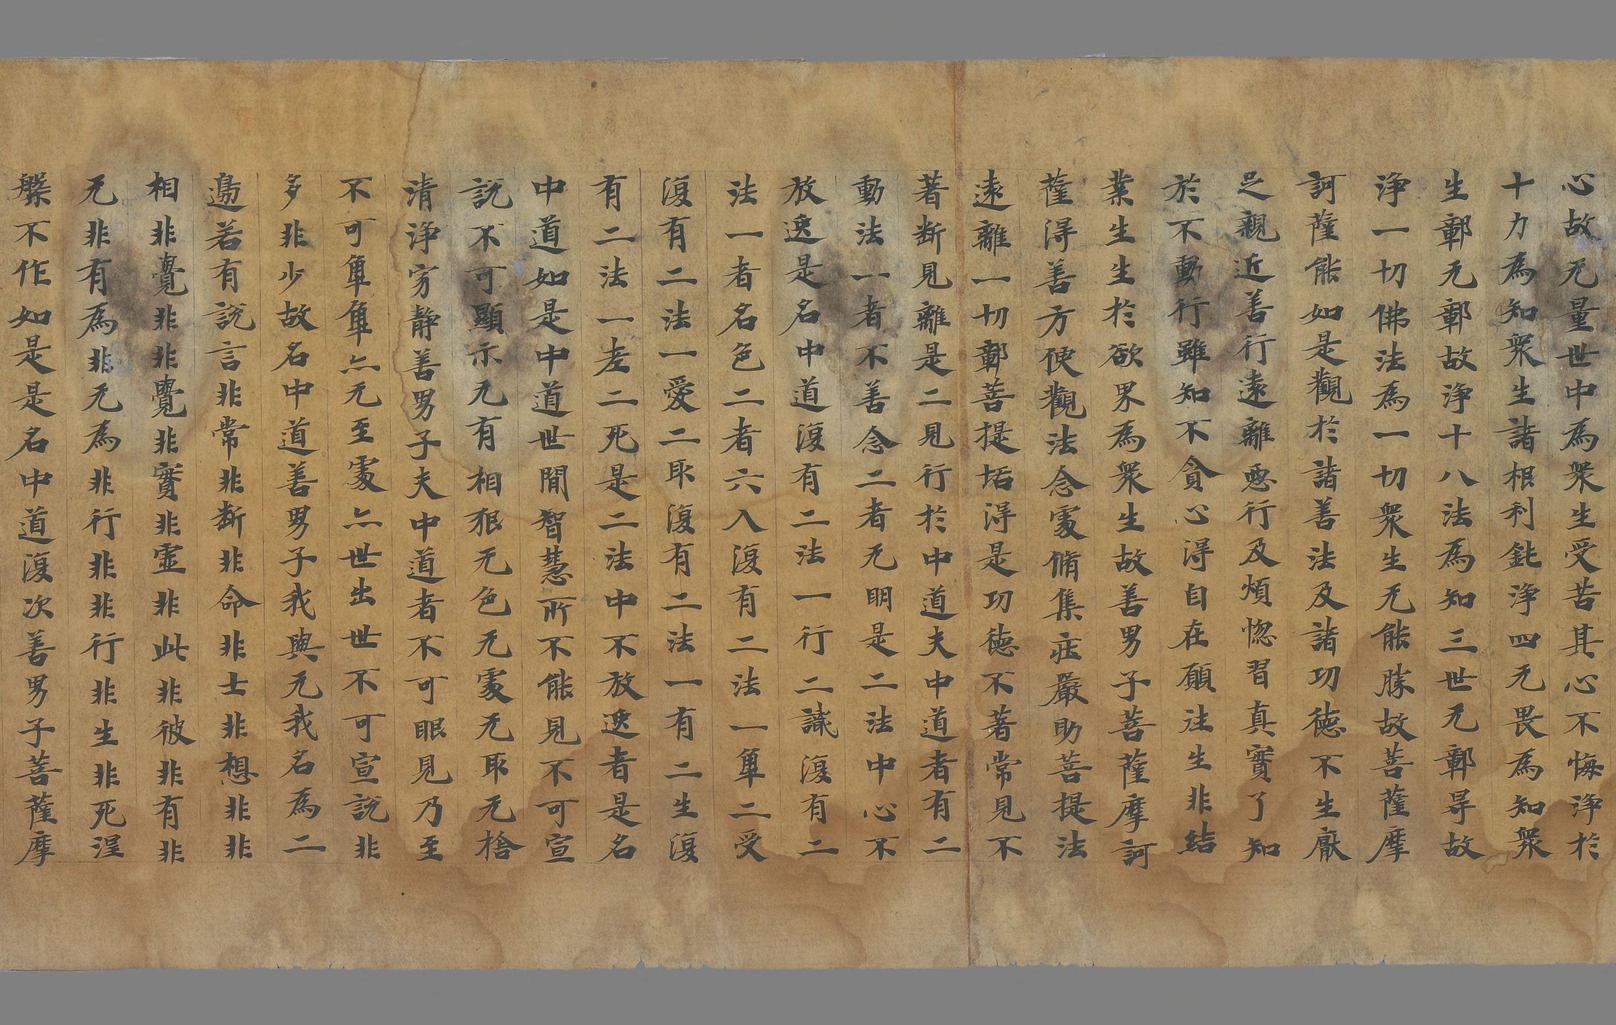 心故无量世中為衆生受苦其心不悔淨於
十力為知衆生諸根利鈍淨四无畏為知衆
生鄣无鄣故淨十八法為知三世无鄣㝵故
淨一切佛法為一切衆生无能勝故菩薩摩
訶薩能如是觀於諸善法及諸功德不生厭
足親近善行遠離惡行及煩惚習真實了知
於不動行雖知不貪心得自在願注生非結
業生生於欲界為衆生故善男子菩薩摩訶
薩得善方便觀法念處脩集莊嚴助菩提法
遠離一切鄣菩提垢得是功德不著常見不
著斷見離是二見行於中道夫中道者有二
動法一者不善念二者无明是二法中心不
放逸是名中道復有二法一行二識復有二
法一者名色二者六入復有二法一䧹二受
復有二法一愛二取復有二法一有二生復
有二法一老二死是二法中不放逸者是名
中道如是中道世間智慧所不能見不可宣
說不可顯示无有相狠无色无處无取无捨
清淨穷静善男子夫中道者不可眼見乃至
不可䧹䧹亦无至處亦世出世不可宣說非
多非少故名中道善男子我與无我名為二
邊若有說言非常非斷非命非士非想非非
相非覺非非覺非實非虛非此非彼非有非
无非有為非无為非行非非行非生非死涅
槃不作如是是名中道復次善男子菩薩摩